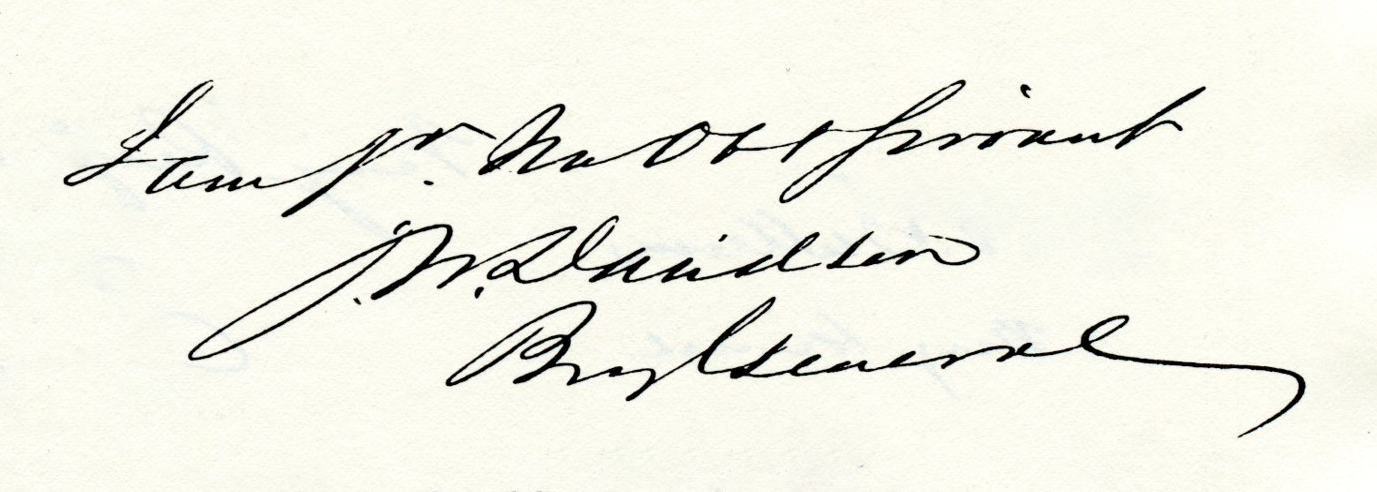 I am yr. Mo Obt Servant
J. W. Davidson
Brig General